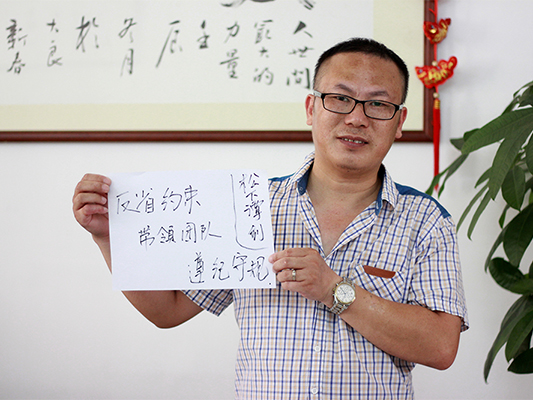 人世间
最大的
力量
辰
冬月
於
大良
新春
反省约束
带領团队
遵纪守规